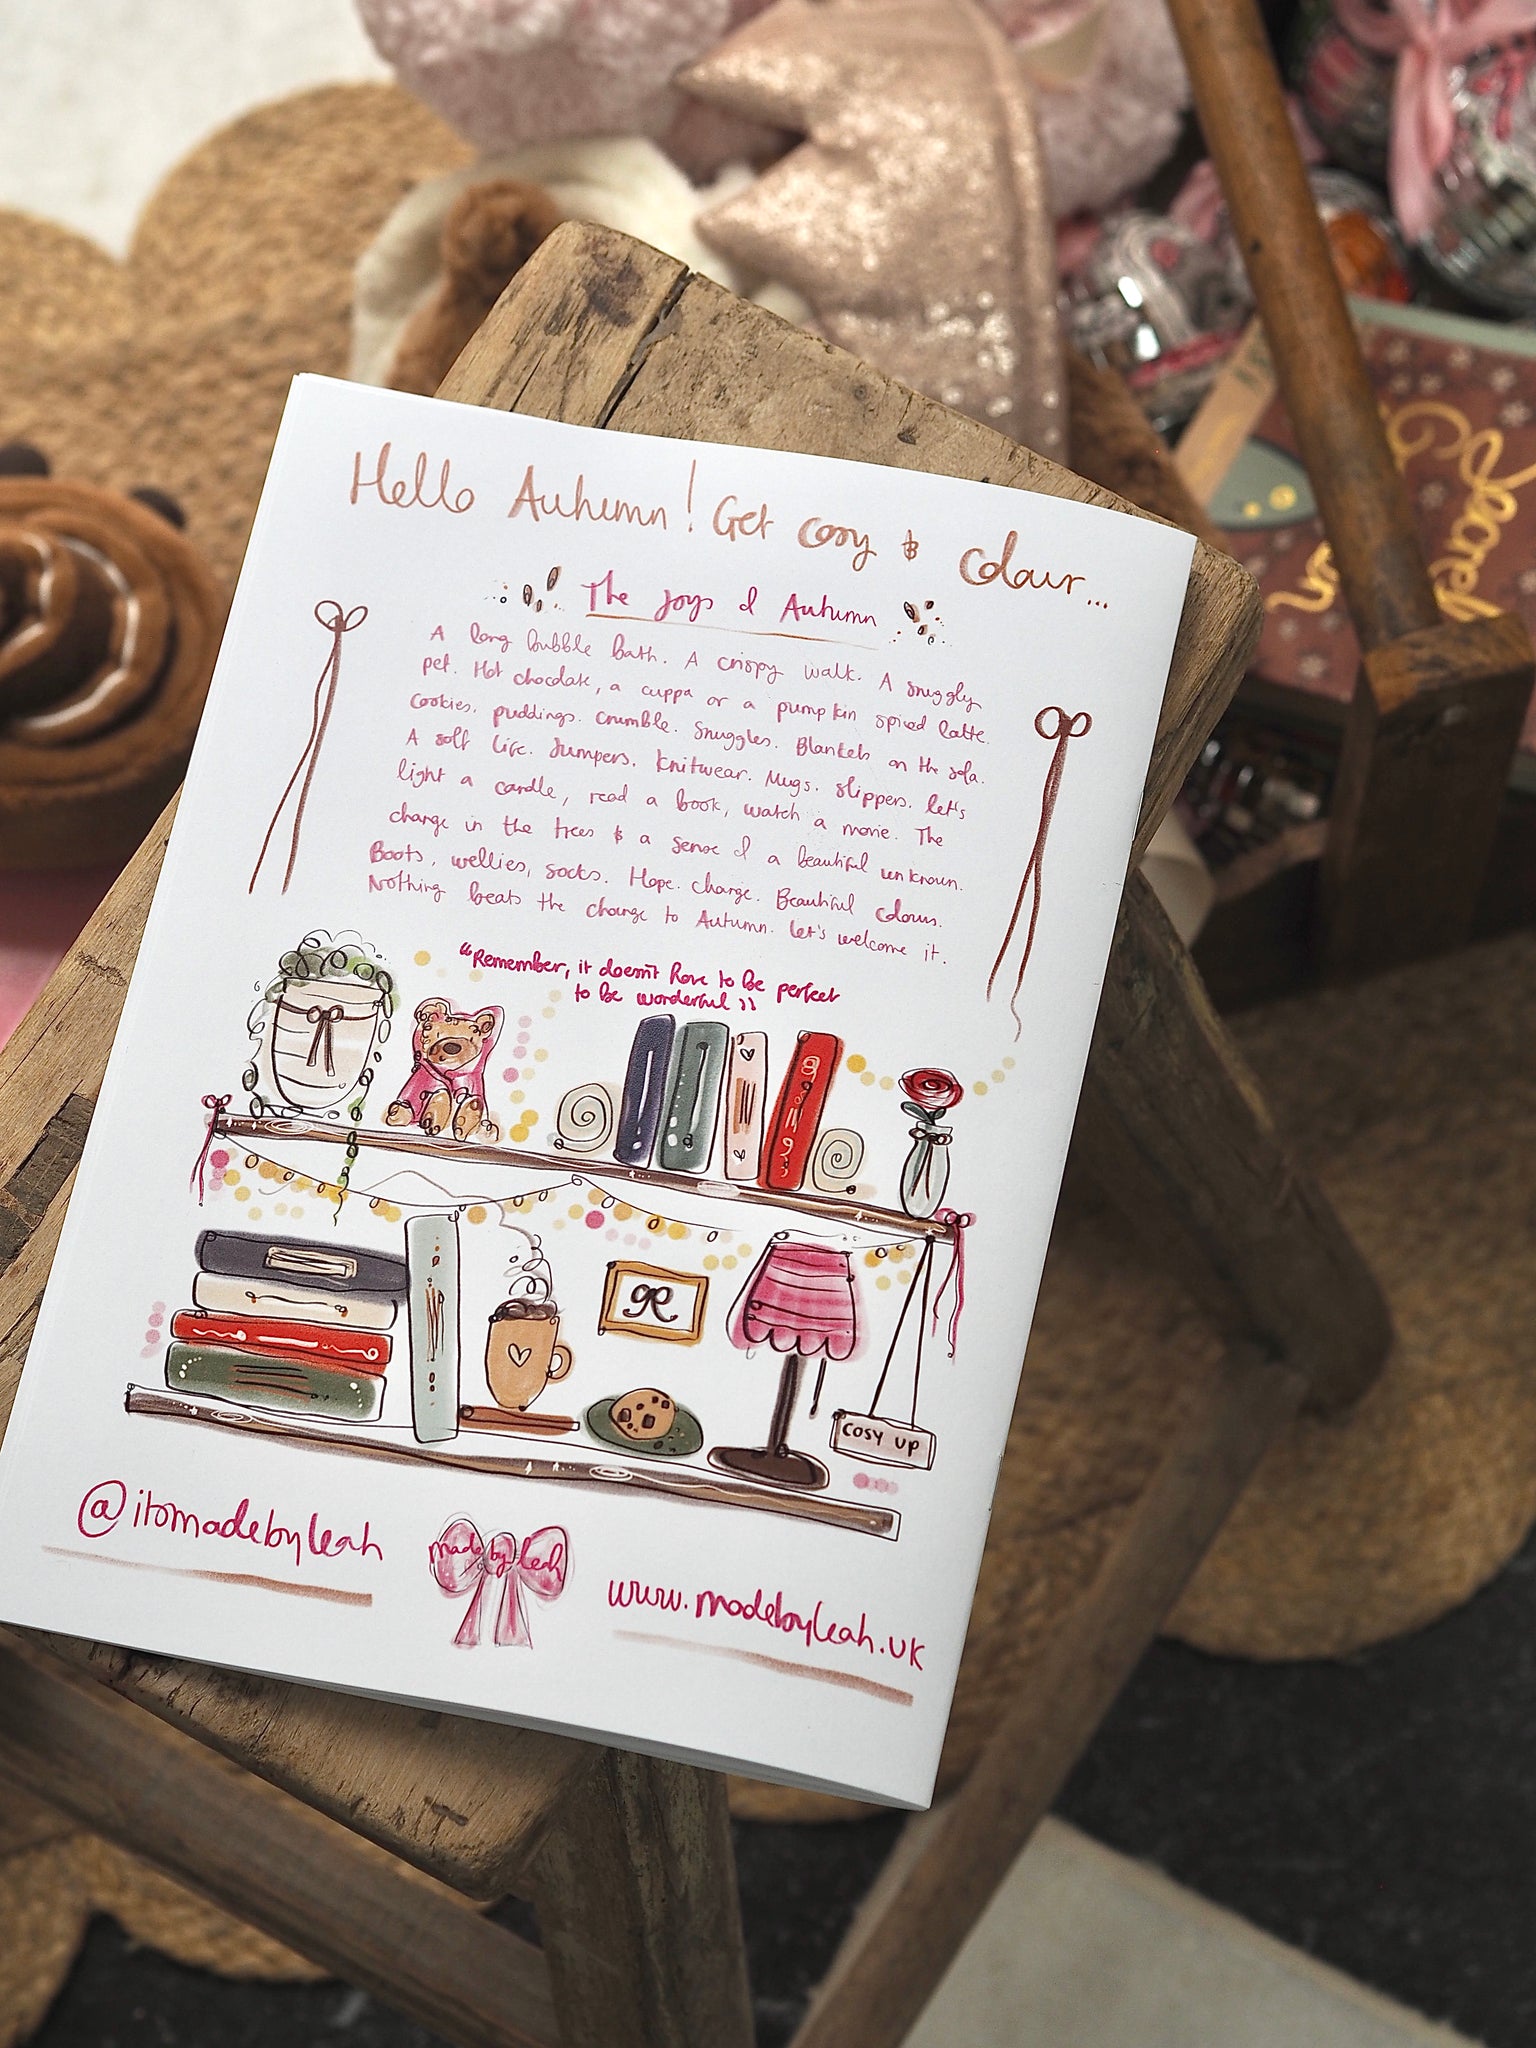 Hello Autumn! Get cosy & colour...
The Joys of Autumn
A long bubble bath. A crispy walk. A snuggly
pet. Hot chocolate, a cuppa or a pumpkin spiced latte.
Cookies. puddings. Crumble. Snuggles. Blankets on the sofa.
A soft life. Jumpers. Knitwear. Mugs. Slippers. Let's
light a candle, read a book, watch a movie. The
change in the trees & a sense of a beautiful unknown.
Boots, wellies, socks. Hope. Change. Beautiful colours.
Nothing beats the change to Autumn. Let's welcome it.
"Remember, it doesn't have to be perfect
to be wonderful"
COSY UP
@itsmadebyleah
made by leah
www.madebyleah.uk
Secret